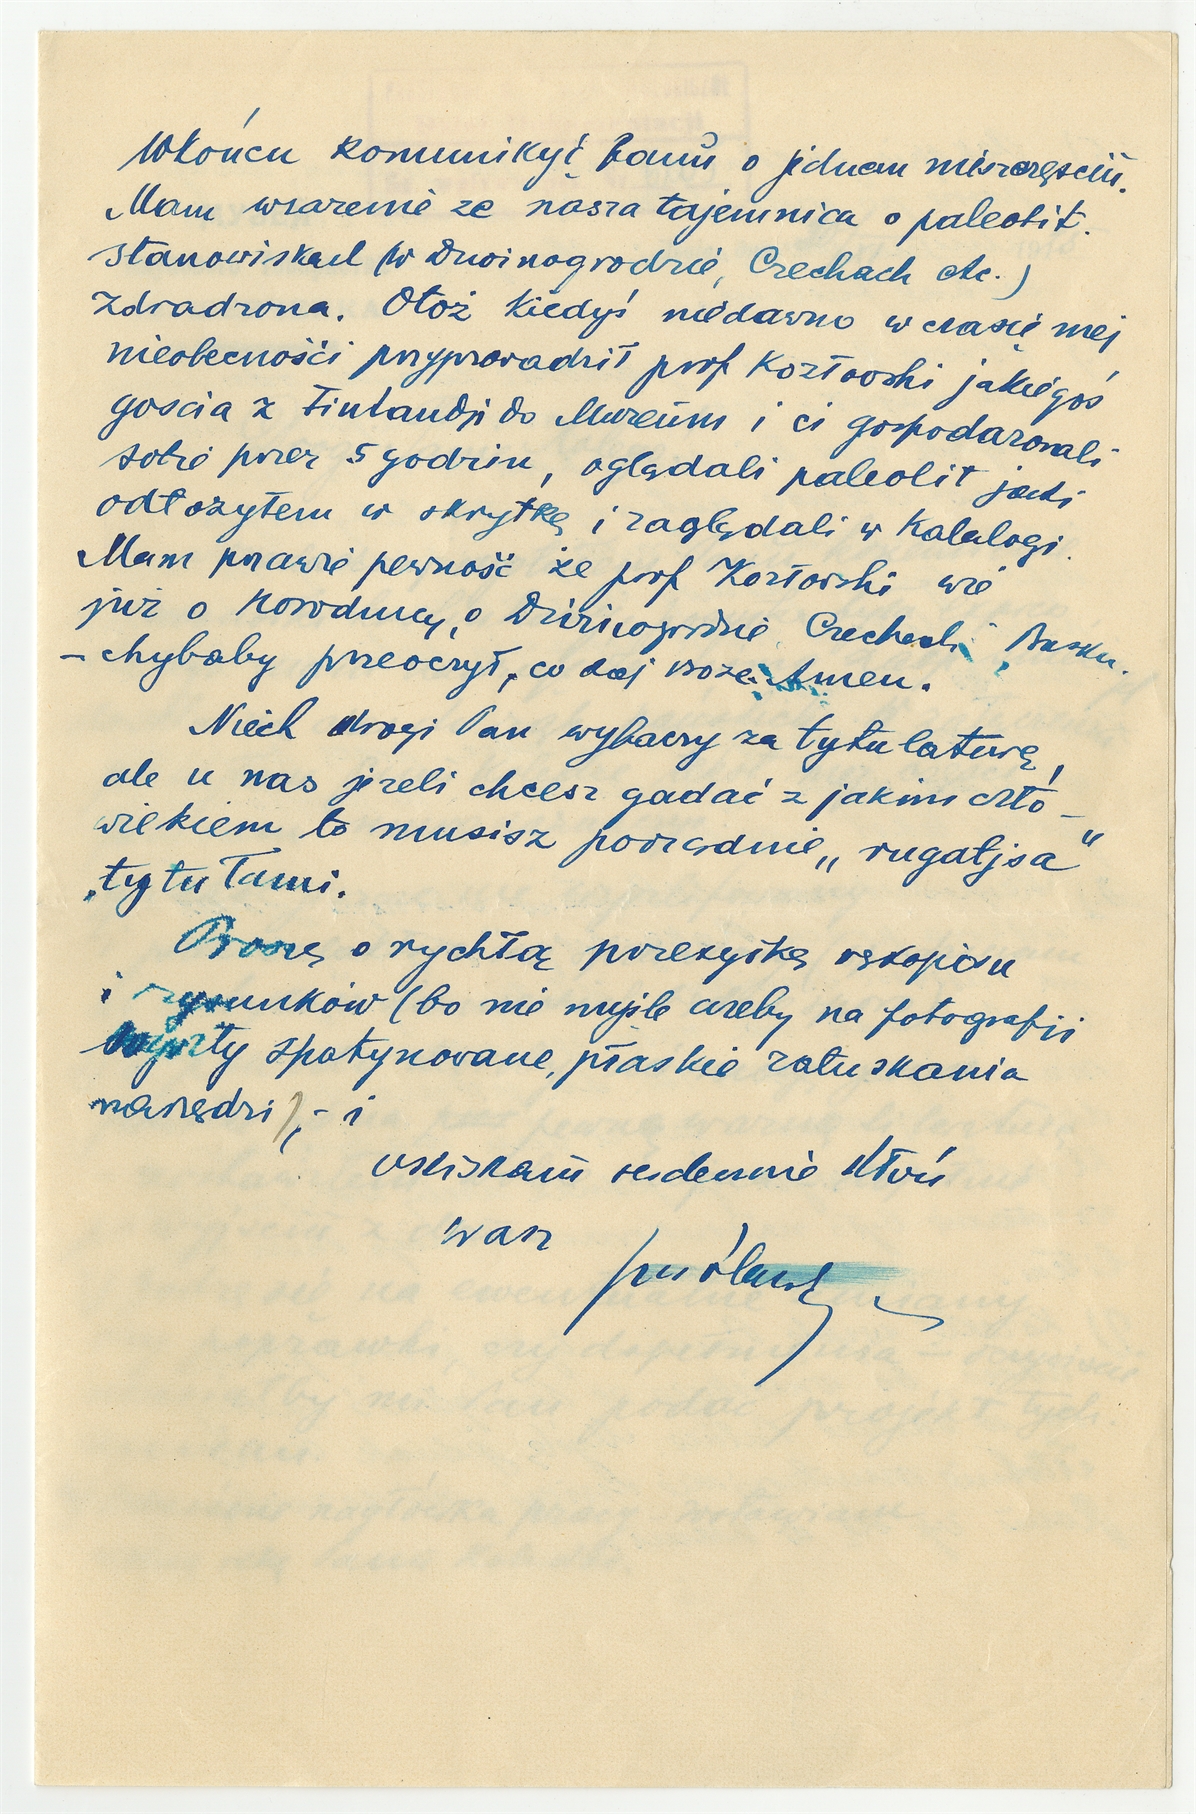 Wkońcu komunikyję Panu o jednem nieszczęściu.
Mam wrażenie ze nasza tajemnica o paleolit.
stanowiskach (w Dźwinogrodzie, Czechach etc.)
zdradzona. Otoż kiedyś niedawno w czasie mej
nieobecnośći przyprowadził prof Kozłowski jakiegoś
goscia z Finlandji do Muzeum i ci gospodarowali
sobie przez 5 godzin, oglądali paleolit jaki
odłożyłem w skrytkę i zaglądali w Katalogi.
Mam prawie pewność że prof Kozłowski wie
już o, o Dźwinogrodzie, Czechach,
– chybaby przeoczył, co daj Boże. Amen.
Niech drogi Pan wybaczy za tytulaturę,
ale u nas jezeli chcesz gadać z jakim czło–
wiekiem to musisz porządnie „rugatjsa“
tytułami.
Proszę o rychłą przesyłkę rękopisu
i rysunków (bo nie myślę ażeby na fotografji
wyszły spatynowane, płaskie załuskania
narzędzi), – i
usciskam serdecznie dłoń
wasz